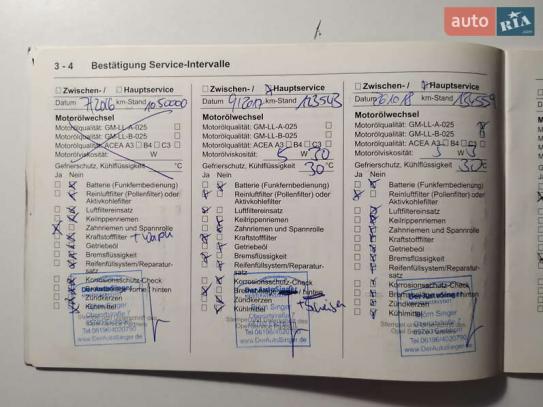 auto RIA.com
3 - 4 Bestätigung Service-Intervalle
Zwischen- / Hauptservice
Datum 7/2016 km-Stand 1050000
Motorölwechsel
Motorölqualität: GM-LL-A-025
Motorölqualität: GM-LL-B-025
Motorölqualität: ACEA A3 B4 C3
Motorölviskosität: W
Gefrierschutz, Kühlflüssigkeit °C
Ja Nein
Batterie (Funkfernbedienung)
Reinluftfilter (Pollenfilter) oder
Aktivkohlefilter
Luftfiltereinsatz
Keilrippenriemen
Zahnriemen und Spannrolle
Kraftstofffilter
Getriebeöl
Bremsflüssigkeit
Reifenfüllsystem/Reparatur-
satz
Korrosionsschutz-Check
Zündkerzen
Kühlmittel
Tel 06196/4020790
www.DerAutoSinger.de
Zwischen- / Hauptservice
Datum 9/2017 km-Stand 123543
Motorölwechsel
Motorölqualität: GM-LL-A-025
Motorölqualität: GM-LL-B-025
Motorölqualität: ACEA A3 B4 C3
Motorölviskosität: 5 W 30
Gefrierschutz, Kühlflüssigkeit 30 °C
Ja Nein
Batterie (Funkfernbedienung)
Reinluftfilter (Pollenfilter) oder
Aktivkohlefilter
Luftfiltereinsatz
Keilrippenriemen
Zahnriemen und Spannrolle
Kraftstofffilter
Getriebeöl
Bremsflüssigkeit
Reifenfüllsystem/Reparatur-
satz
Korrosionsschutz-Check
hinten
Zündkerzen
Kühlmittel
Björn Singer
Tel 06196/4020790
www.DerAutoSinger.de
Zwischen- / Hauptservice
Datum km-Stand 134559
Motorölwechsel
Motorölqualität: GM-LL-A-025
Motorölqualität: GM-LL-B-025
Motorölqualität: ACEA A3 B4 C3
Motorölviskosität: W
Gefrierschutz, Kühlflüssigkeit °C
Ja Nein
Batterie (Funkfernbedienung)
Reinluftfilter (Pollenfilter) oder
Aktivkohlefilter
Luftfiltereinsatz
Keilrippenriemen
Zahnriemen und Spannrolle
Kraftstofffilter
Getriebeöl
Bremsflüssigkeit
Reifenfüllsystem/Reparatur-
satz
Korrosionsschutz-Check
Zündkerzen
Kühlmittel
Björn Singer
Tel 06196/4020790
www.DerAutoSinger.de